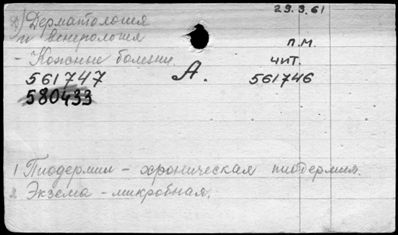 29.3.61
в) Дерматология
и венерология
п.м.
- Кожные болезни.
чит.
561747
А.
561746
580433
1 Пиодермии - хроническая пиодермия.
2. Экзема - микробная.